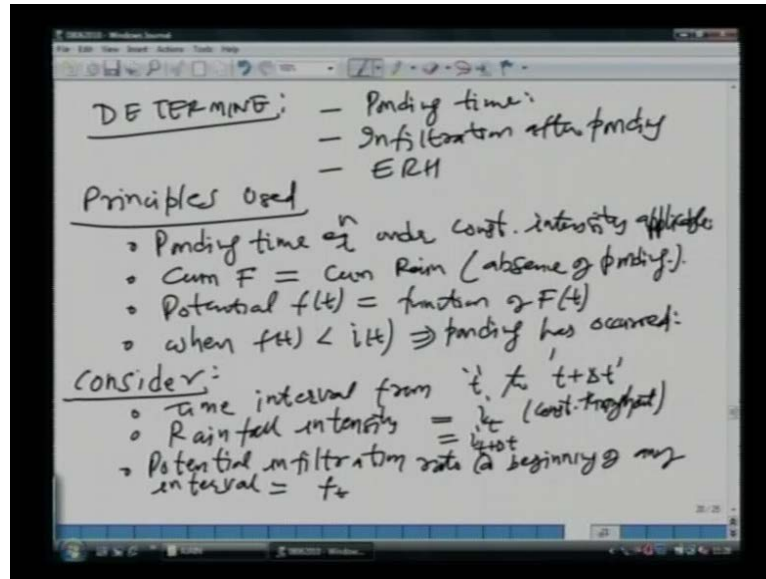 File Edit View Insert Actions Tools Help
DETERMINE: – Ponding time:
– Infiltration after ponding
– ERH
Principles Used
• Ponding time eqn under const. intensity applicable
• Cum F = Cum Rain (absence of ponding.).
• Potential f(t) = function of F(t)
• when f(t) < i(t) ⇒ ponding has occurred:
Consider:
• Time interval from 't' to 't+Δt'
• Rainfall intensity = it (const. throughout)
= it+Δt
• Potential infiltration rate @ beginning of any
interval = ft